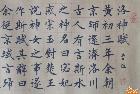 洛神賦
黃初三年余朝
京師還濟洛川
古人有言斯水
之神名曰宓妃
感宋玉對楚王
說神女之事遂
作斯賦其詞曰
余從京域言歸